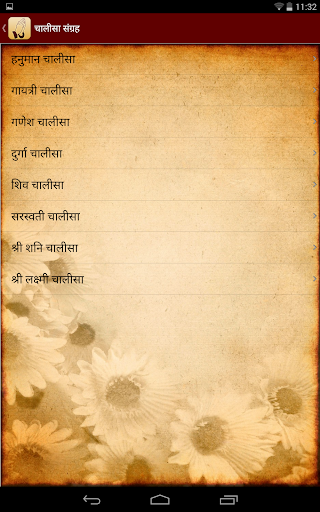 11:32
चालीसा संग्रह
हनुमान चालीसा
गायत्री चालीसा
गणेश चालीसा
दुर्गा चालीसा
शिव चालीसा
सरस्वती चालीसा
श्री शनि चालीसा
श्री लक्ष्मी चालीसा